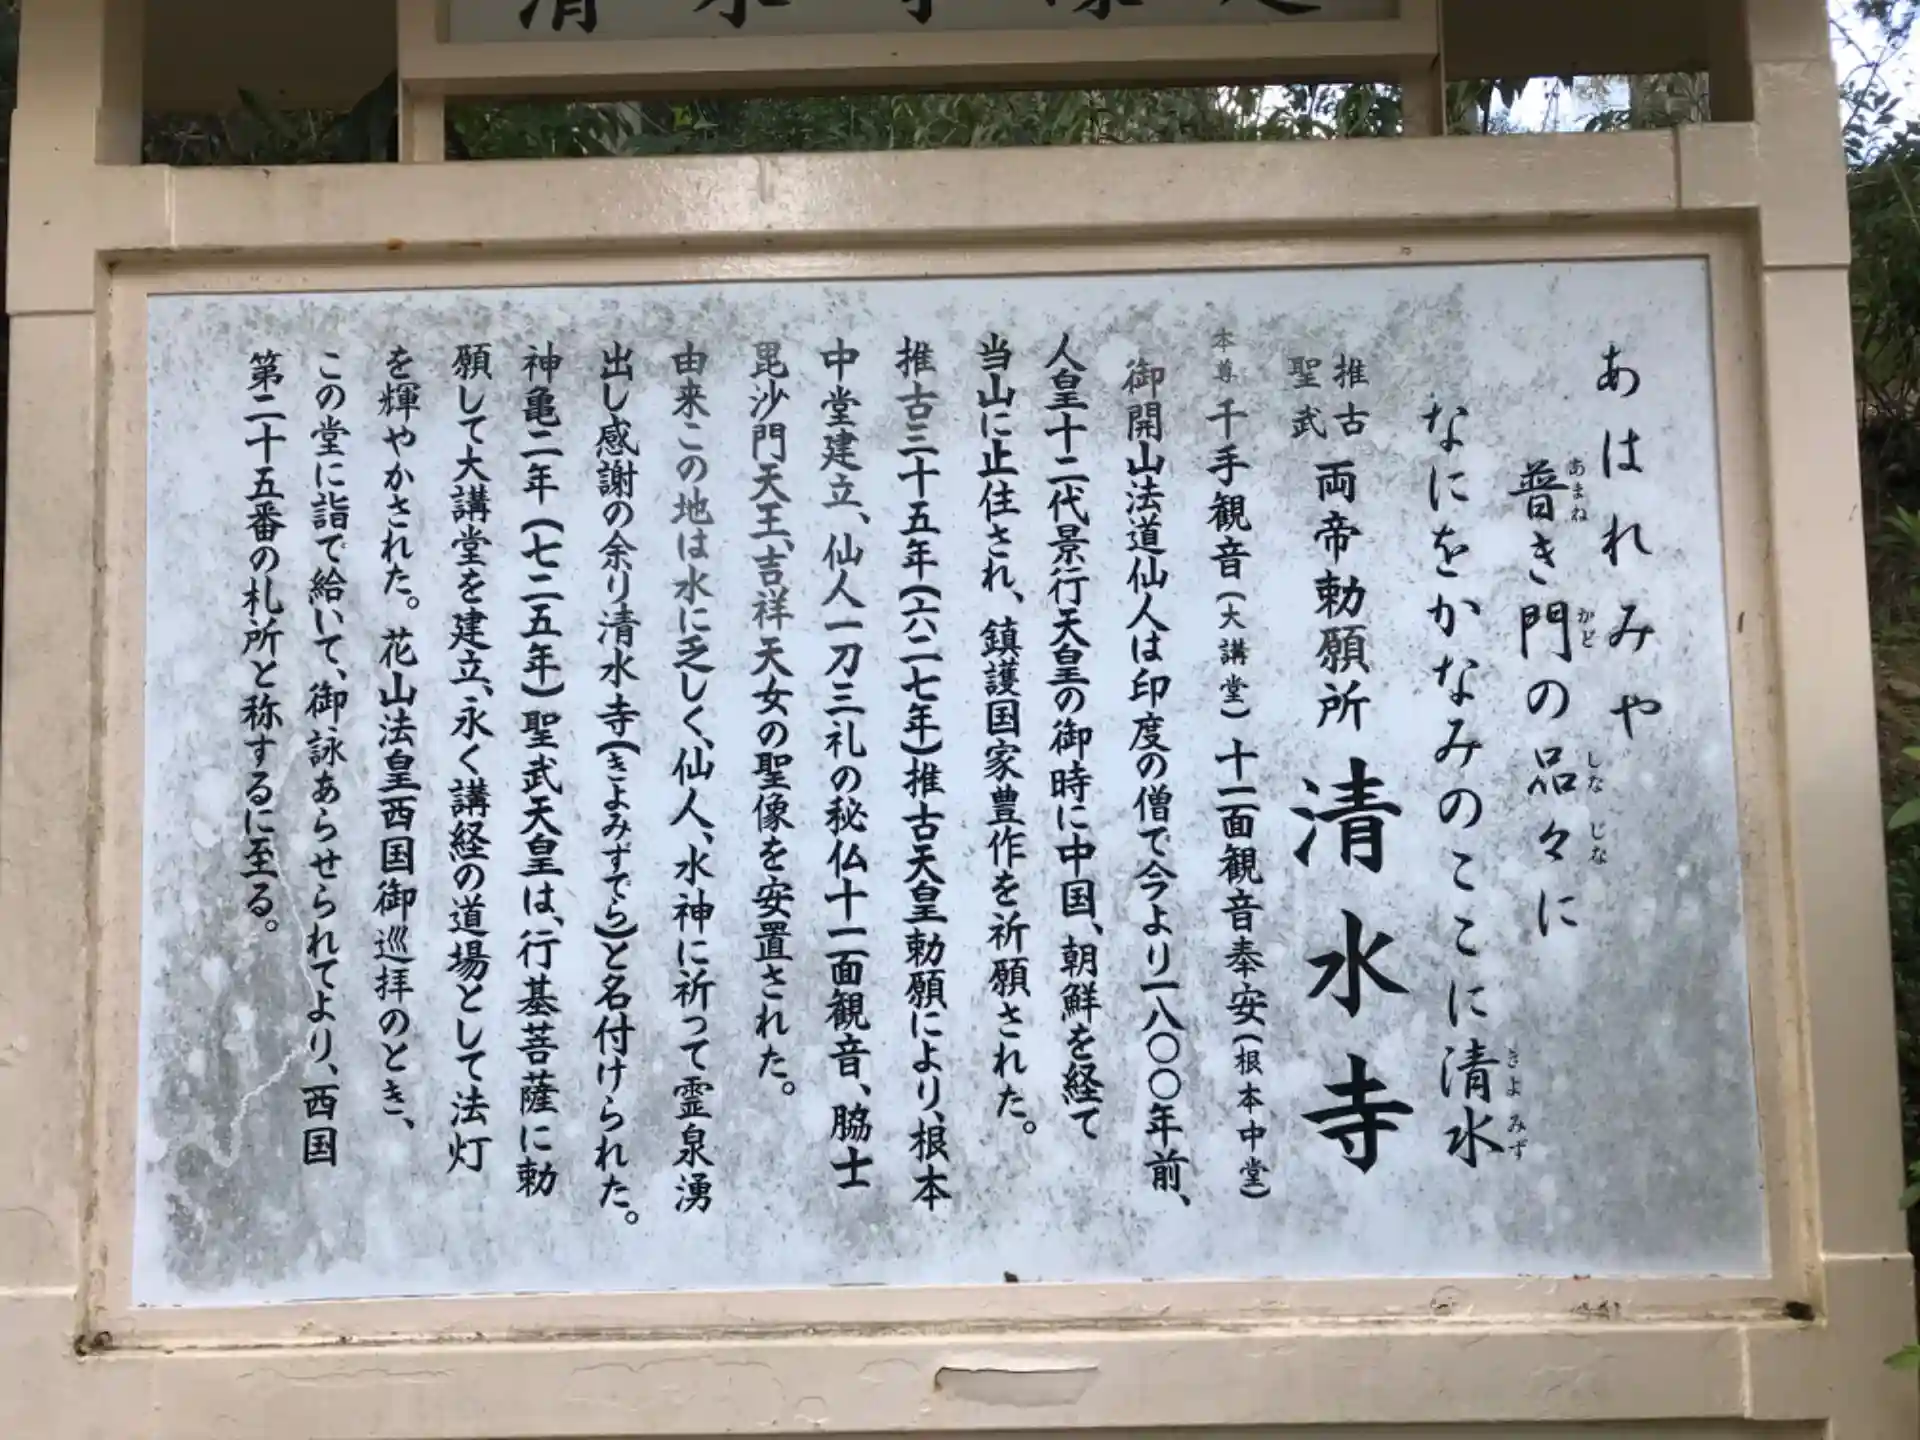 清水寺縁起
あはれみや
普き門の品々に
あまね
かど
しな
じな
なにをかなみのここに清水
きよみず
推古
聖武
両帝勅願所 清水寺
本尊 千手観音(大講堂) 十二面観音奉安(根本中堂)
御開山法道仙人は印度の僧で今より一八〇〇年前、
人皇十二代景行天皇の御時に中国、朝鮮を経て
当山に止住され、鎮護国家豊作を祈願された。
推古三十五年(六二七年)推古天皇勅願により、根本
中堂建立、仙人一刀三礼の秘仏十一面観音、脇士
毘沙門天王、吉祥天女の聖像を安置された。
由来この地は水に乏しく、仙人、水神に祈って霊泉湧
出し感謝の余り清水寺(きよみずでら)と名付けられた。
神亀二年(七二五年)聖武天皇は、行基菩薩に勅
願して大講堂を建立、永く講経の道場として法灯
を輝やかされた。花山法皇西国御巡拝のとき、
この堂に詣で給いて、御詠あらせられてより、西国
第二十五番の札所と称するに至る。